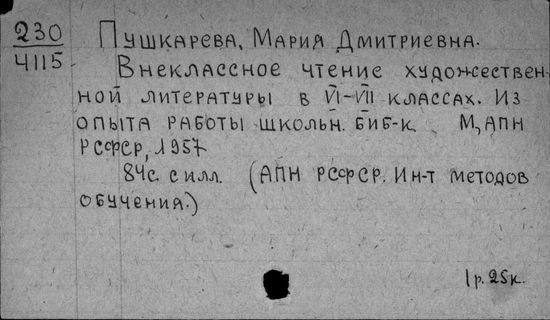 230
4115
Пушкарева, Мария Дмитриевна.
Внеклассное чтение художествен-
ной литературы в VI-VII классах. Из
опыта работы школьн. биб-к. М, АПН
РСФСР, 1957
84с. с илл. (АПН РСФСР. Ин-т методов
обучения.)
1р. 25к.